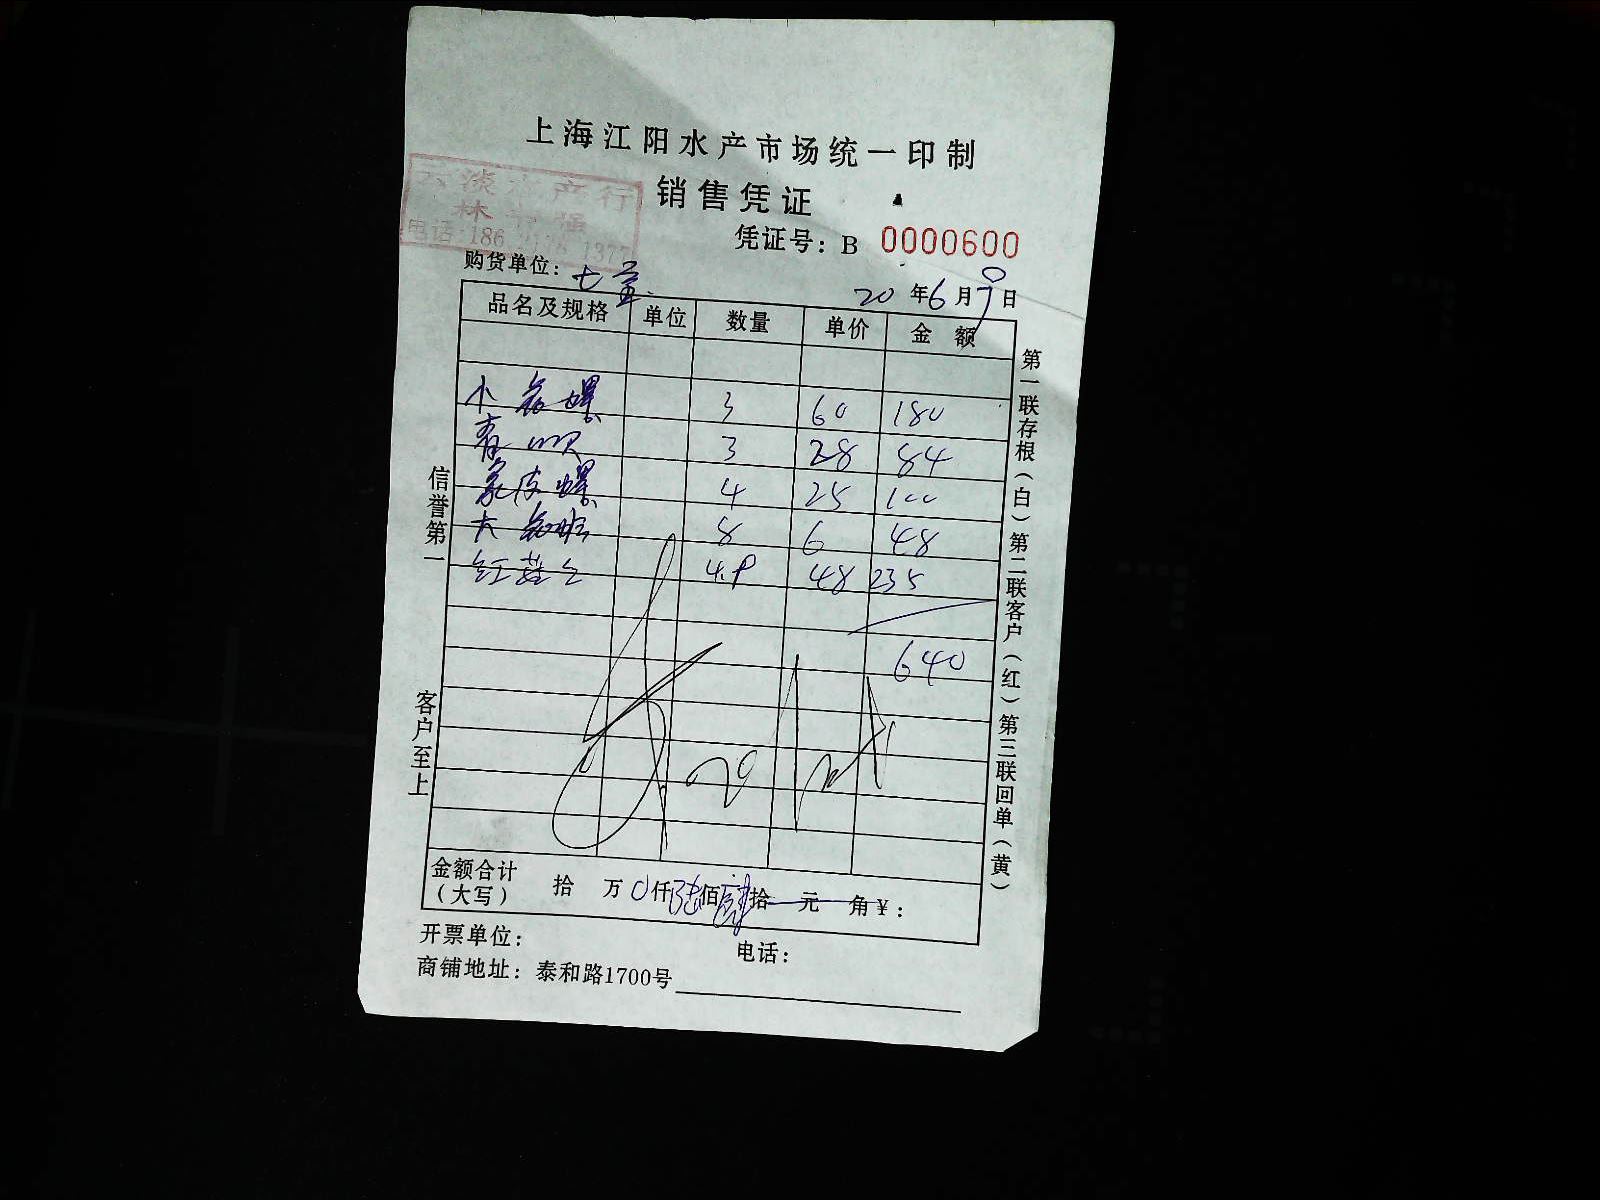 上海江阳水产市场统一印制
销售凭证
淡水产行
林
电话:186 1377
凭证号: B 0000600
购货单位: 七
20 年 6 月 9 日
品名及规格 单位 数量 单价 金 额
小 螺 3 60 180
青 3 28 84
象皮螺 4 25 100
大 8 6 48
红 4.9 48 235
640
金额合计(大写) 拾 万 0 仟 陆 佰 肆 拾 元 角 ¥:
开票单位: 电话:
商铺地址: 泰和路1700号
信誉第一
客户至上
第一联存根(白)第二联客户(红)第三联回单(黄)